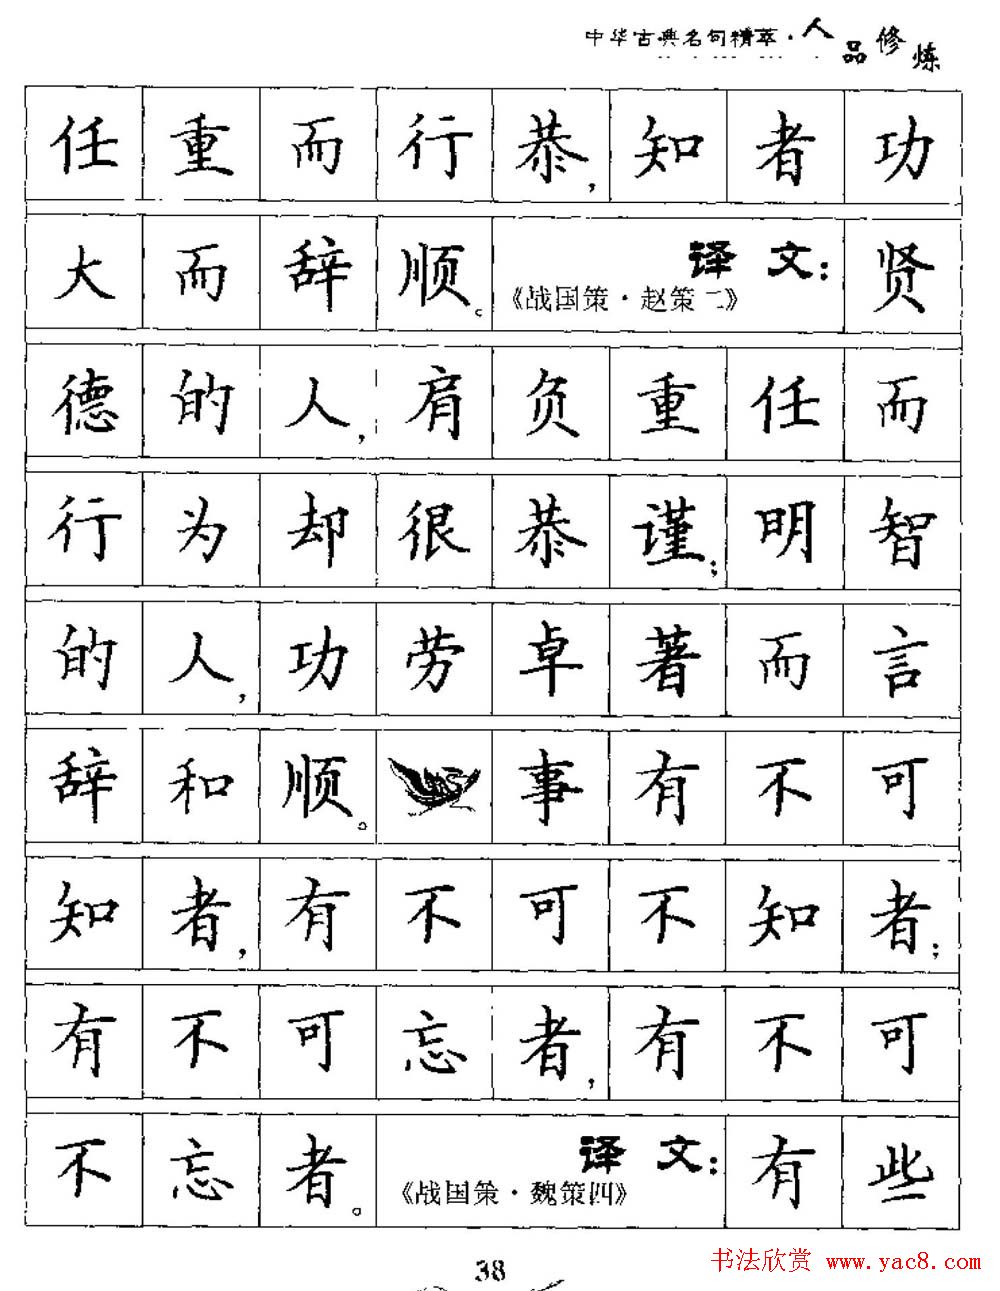 中华古典名句精萃·人品修炼
任重而行恭，知者功
大而辞顺。《战国策·赵策二》译文：贤
德的人，肩负重任而
行为却很恭谨；明智
的人，功劳卓著而言
辞和顺。事有不可
知者，有不可不知者；
有不可忘者，有不可
不忘者。《战国策·魏策四》译文：有些
38
书法欣赏 www.yac8.com